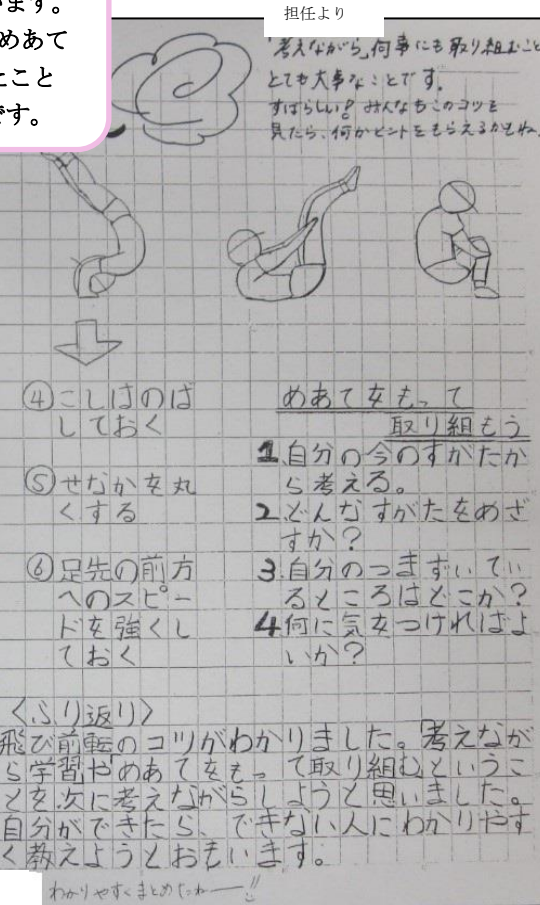 います。
めあて
たこと
です。
担任より
「考えながら」何事にも取り組むこと
とても大事なことです。
すばらしい!みんなもこのコツを
見たら、何かヒントをもらえるかもね。
④こしはのば
しておく
⑤せなかを丸
くする
⑥足先の前方
へのスピー
ドを強くし
ておく
めあてをもって
取り組もう
1.自分の今のすがたか
ら考える。
2.どんなすがたをめざ
すか?
3.自分のつまずいてい
るところはどこか?
4.何に気をつければよ
いか?
〈ふり返り〉
飛び前転のコツがわかりました。「考えなが
ら学習やめあてをもって取り組む」というこ
とを次に考えながらしようと思いました。
自分ができたら、できない人にわかりやす
く教えようとおもいます。
わかりやすくまとめたねー!!